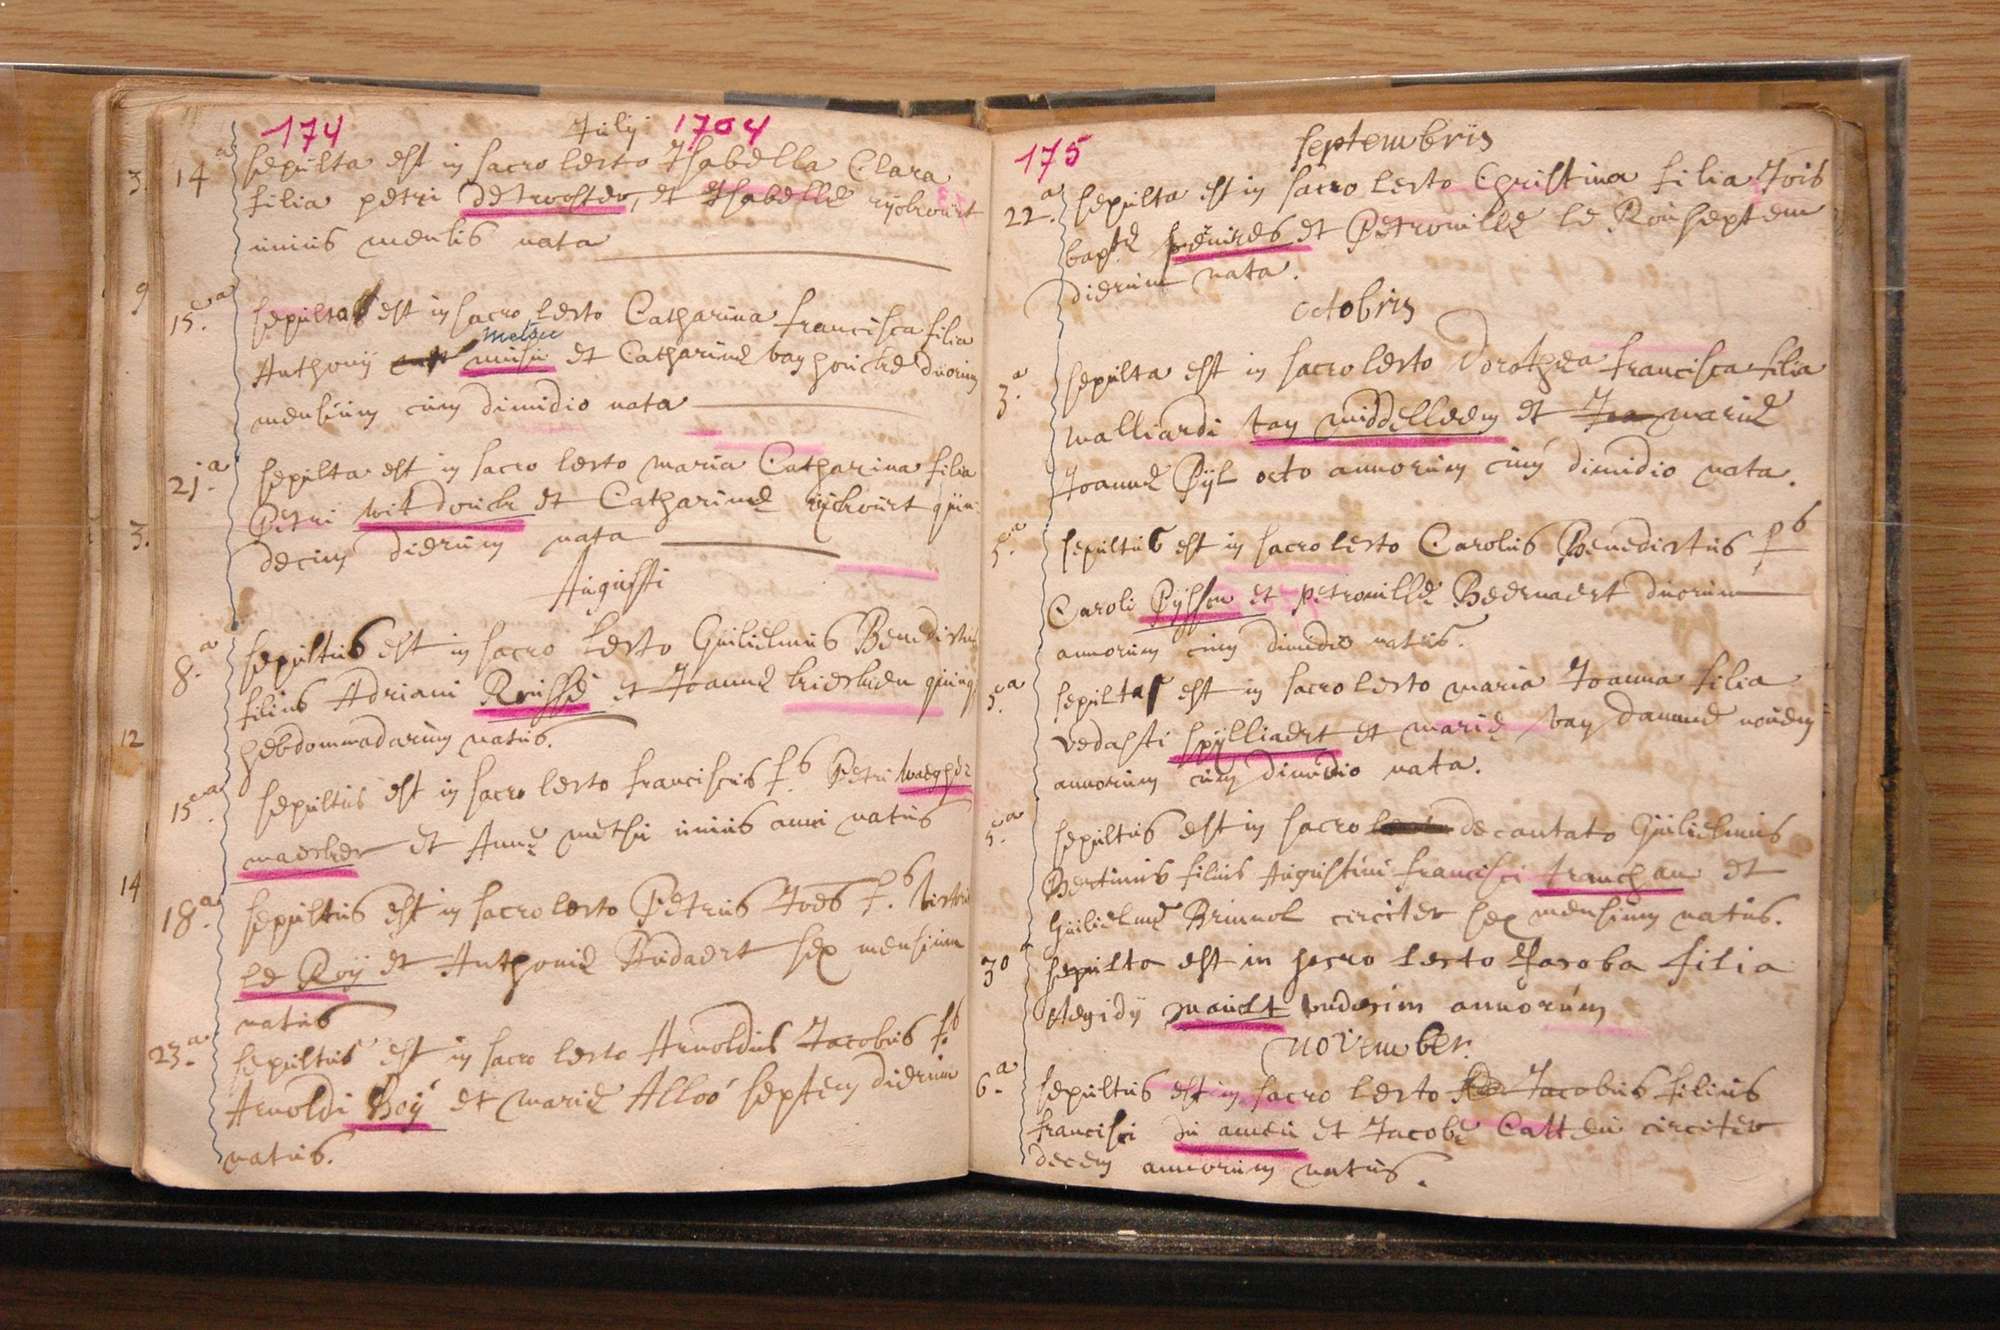 174 July 1704
3. 14a sepulta est in sacro lecto Isabella Clara
filia petri Detrooster, et Isabellæ ryckourt
unius mensis nata
9 15.a sepulta est in sacro lecto Catharina francisca filia
Metsu
Anthonij musin et Catharinæ van honicke duorum
mensium cum dimidio nata
21.a sepulta est in sacro lecto maria Catharina filia
Petri witdouck et Catharinæ ryckourt quin
3. decim dierum nata
Augusti
8.a sepultus est in sacro lecto Guilielmus Benedictus
filius Adriani et Joannæ quinq
12 hebdommadarum natus.
15.a sepultus est in sacro lecto franciscus fs Petri waeghe
maecker et Annæ metsu unius anni natus
14 18.a sepultus est in sacro lecto Petrus Joes fs.
le Roy et Anthoniæ Budaert sex mensium
natus
23.a sepultus est in sacro lecto Arnoldus Jacobus fs
Arnoldi Boÿ et Mariæ Alloo septem dierum
natus.
175 Septembris
22.a sepulta est in sacro lecto Christina filia Jois
baptæ et Petronillæ le Roÿ septem
dierum nata.
octobris
3.a sepulta est in sacro lecto Dorothea francisca filia
walliardi van middelleem et mariæ
Joannæ Pÿl octo annorum cum dimidio nata.
5.a sepultus est in sacro lecto Carolus Benedictus fs
Caroli Pÿsson et petronillæ Beernaert duorum
annorum cum dimidio natus.
5.a sepulta est in sacro lecto maria Joanna filia
vedasti spÿlliaert et mariæ van Damme novem
annorum cum dimidio nata.
5.a sepultus est in sacro decantato Guilielmus
Bertinus filius Augustini francisci tranchan et
Guilielmæ Brunol circiter sex mensium natus.
30a sepulta est in sacro lecto Jacoba filia
Aegidij Mauclt undecim annorum
November.
6.a sepultus est in sacro lecto Jacobus filius
francisci du amen et Jacobæ Catteu circiter
decem annorum natus.